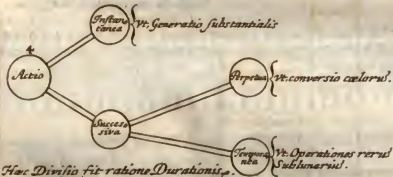 4
Actio
Instan=
tanea
Vt. Generatio substantialis
Succes=
siva
Perpetua
Vt. conversio cælorū.
Tempora=
nea
Vt. Operationes rerū
Sublunariū.
Hæc Divisio fit ratione Durationis.